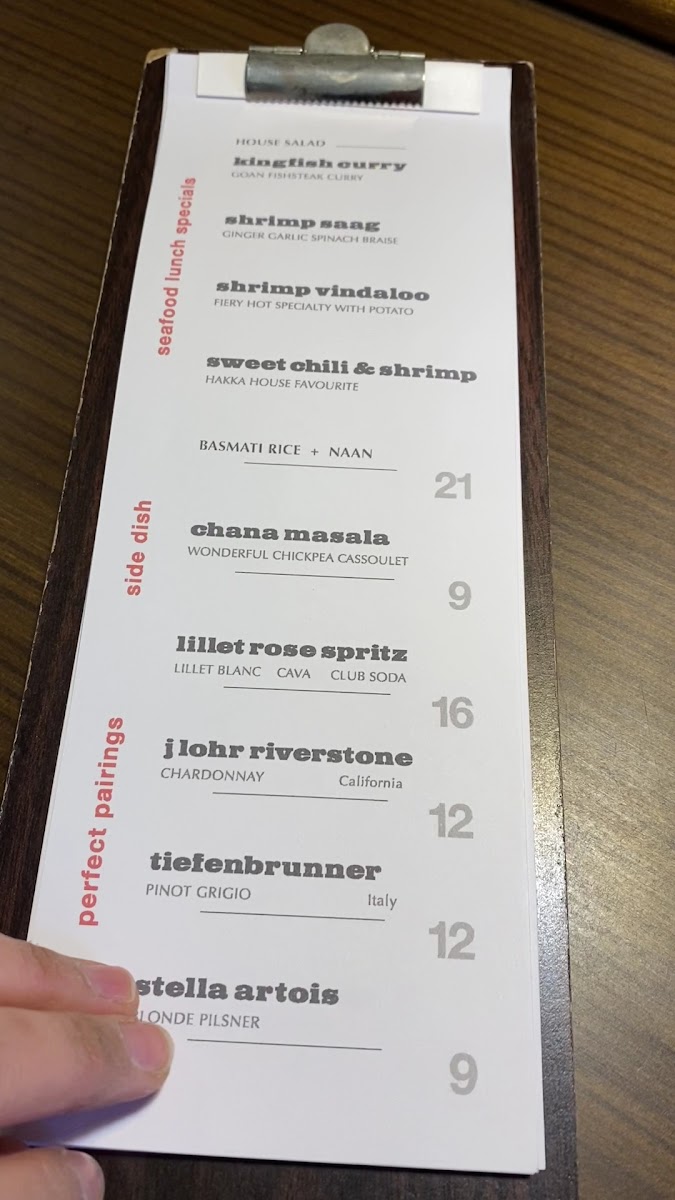 HOUSE SALAD
kingfish curry
GOAN FISHSTEAK CURRY
seafood lunch specials
shrimp saag
GINGER GARLIC SPINACH BRAISE
shrimp vindaloo
FIERY HOT SPECIALTY WITH POTATO
sweet chili & shrimp
HAKKA HOUSE FAVOURITE
BASMATI RICE + NAAN
21
side dish
chana masala
WONDERFUL CHICKPEA CASSOULET
9
perfect pairings
lillet rose spritz
LILLET BLANC CAVA CLUB SODA
16
j lohr riverstone
CHARDONNAY California
12
tiefenbrunner
PINOT GRIGIO Italy
12
stella artois
LONDE PILSNER
9